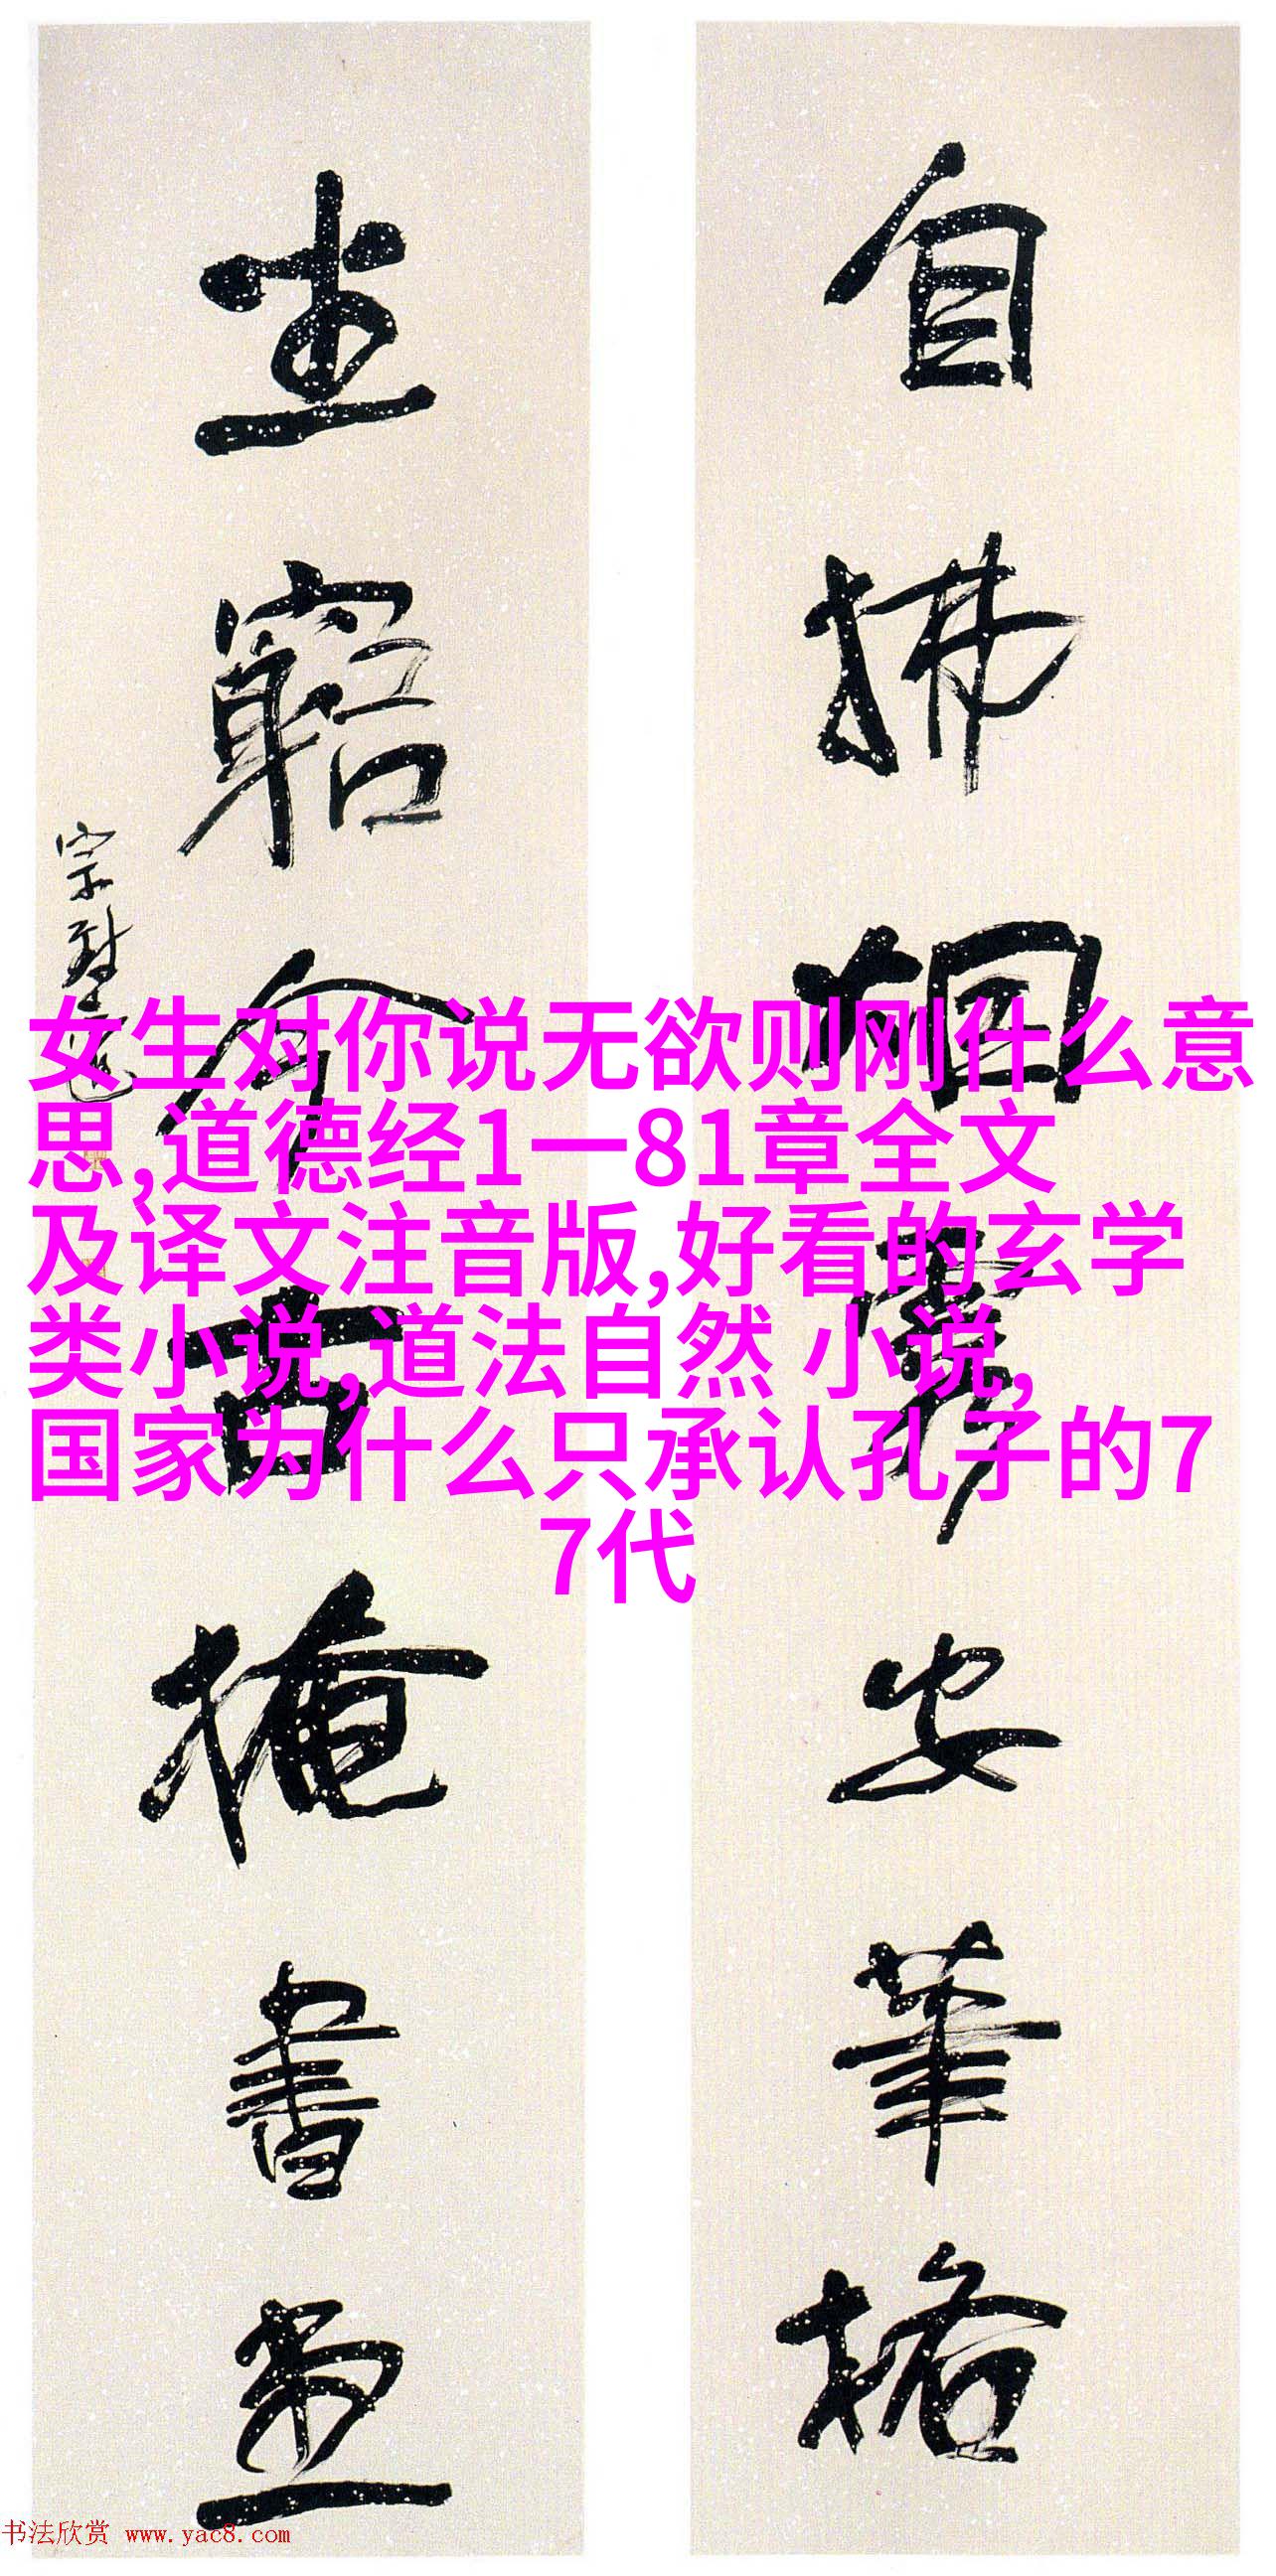 自拂烟霞安筆格
坐窮今古掩書堂
女生对你说无欲则刚什么意
思,道德经1一81章全文
及译文注音版,好看的玄学
类小说,道法自然 小说,
国家为什么只承认孔子的7
7代
书法欣赏 www.yac8.com